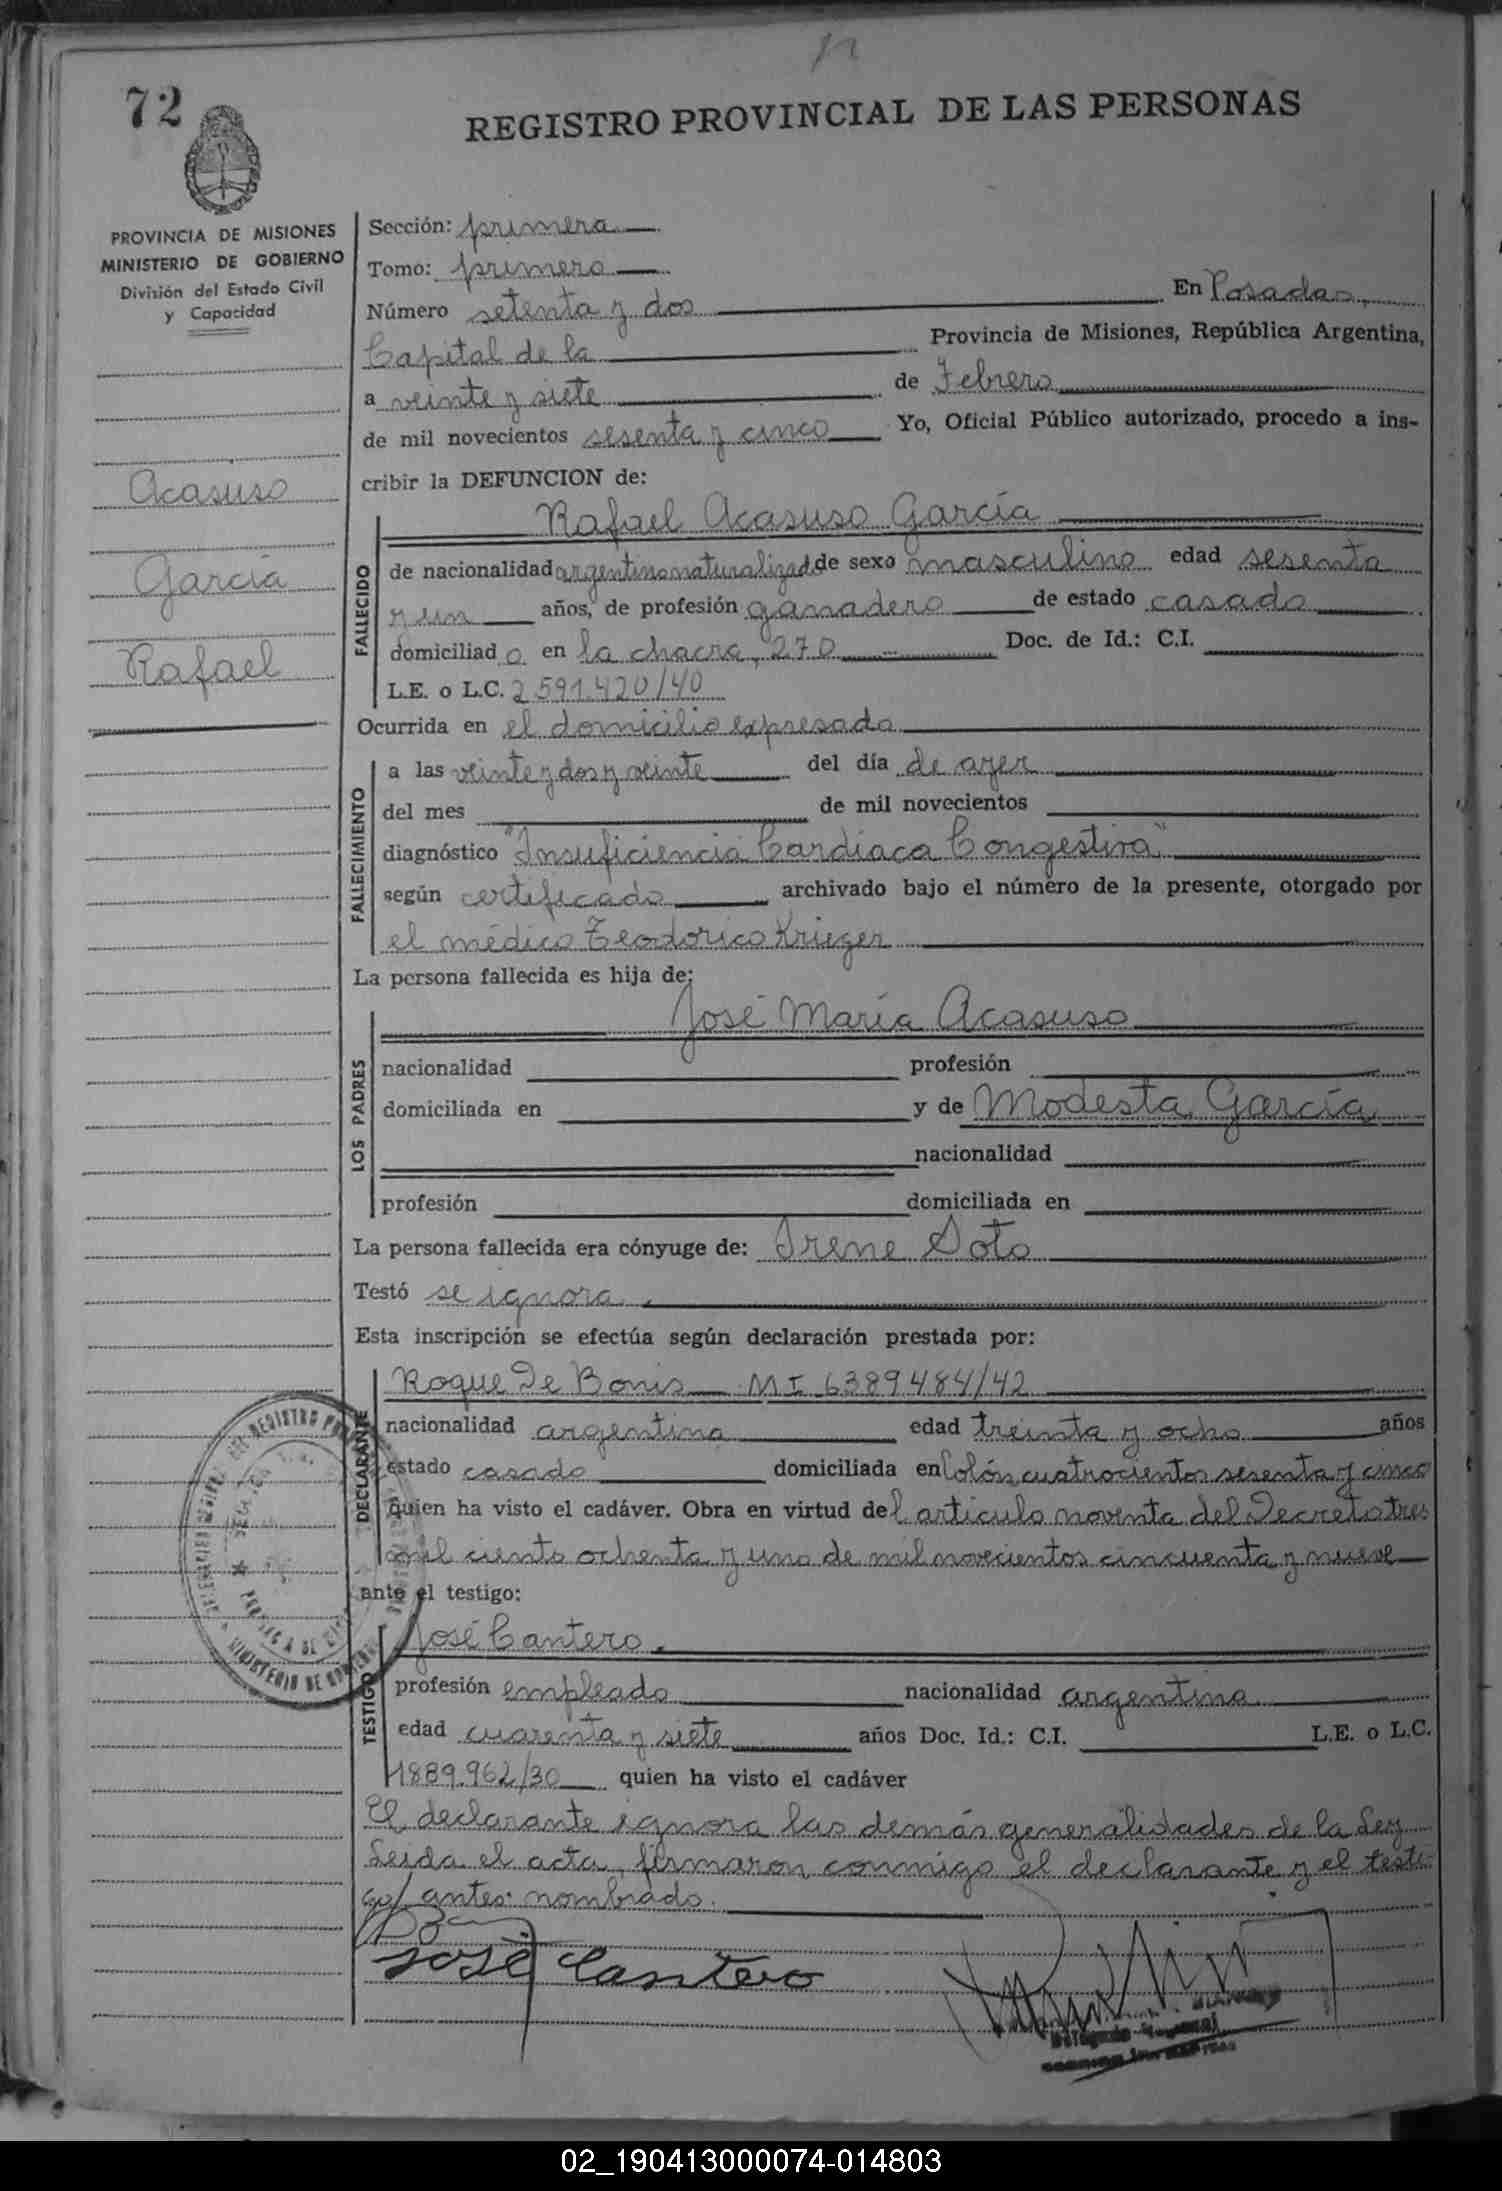 72
REGISTRO PROVINCIAL DE LAS PERSONAS
PROVINCIA DE MISIONES
MINISTERIO DE GOBIERNO
División del Estado Civil
y Capacidad
Acasuso
García
Rafael
Sección: primera
Tomo: primero
Número setenta y dos En Posadas,
Capital de la Provincia de Misiones, República Argentina,
a veinte y siete de Febrero
de mil novecientos sesenta y cinco Yo, Oficial Público autorizado, procedo a ins-
cribir la DEFUNCION de:
Rafael Acasuso García
FALLECIDO
de nacionalidad argentino naturalizado de sexo masculino edad sesenta
y un años, de profesión ganadero de estado casado
domiciliado en la chacra, 270 Doc. de Id.: C.I.
L.E. o L.C. 2.591.420/40
Ocurrida en el domicilio expresado
FALLECIMIENTO
a las veinte y dos y veinte del día de ayer
del mes de mil novecientos
diagnóstico "Insuficiencia Cardíaca Congestiva"
según certificado archivado bajo el número de la presente, otorgado por
el médico Teodorico Krieger
La persona fallecida es hija de:
LOS PADRES
José María Acasuso
nacionalidad profesión
domiciliada en y de Modesta García
nacionalidad
profesión domiciliada en
La persona fallecida era cónyuge de: Irene Soto
Testó se ignora.
Esta inscripción se efectúa según declaración prestada por:
DECLARANTE
Roque De Bonis MI 6389484/42
nacionalidad argentina edad treinta y ocho años
estado casado domiciliada en Colón cuatrocientos sesenta y cinco
quien ha visto el cadáver. Obra en virtud del artículo noventa del Decreto tres
mil ciento ochenta y uno de mil novecientos cincuenta y nueve
ante el testigo:
TESTIGO
José Cantero.
profesión empleado nacionalidad argentina
edad cuarenta y siete años Doc. Id.: C.I. L.E. o L.C.
1889.962/30 quien ha visto el cadáver
El declarante ignora las demás generalidades de la Ley
Leida el acta, firmaron conmigo el declarante y el testi-
go antes nombrado.
José Cantero
02_190413000074-014803